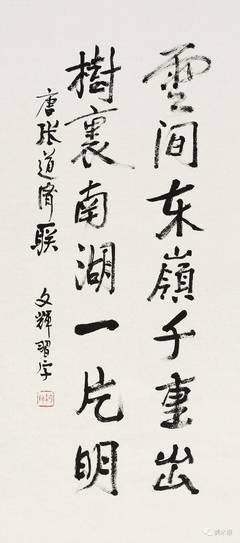 雲间东嶺千重出
樹裏南湖一片明
唐张道濟联
文輝習字